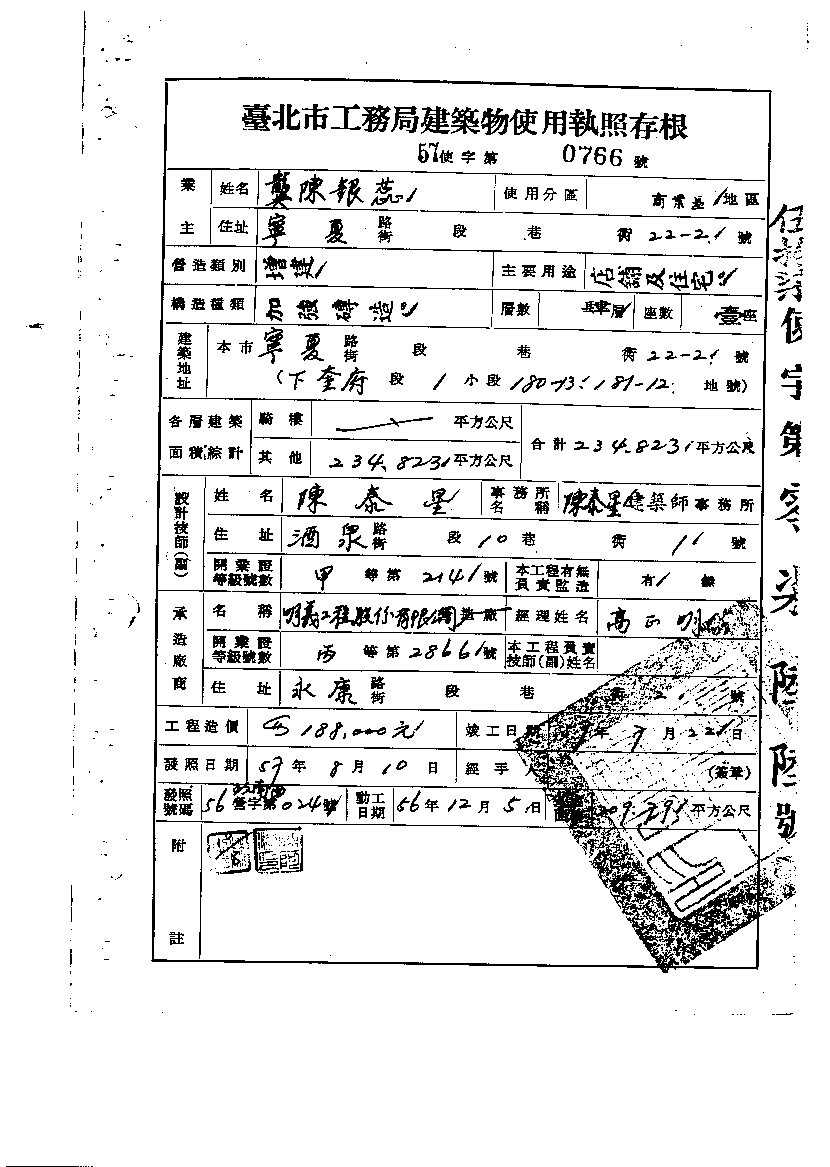 臺北市工務局建築物使用執照存根
57使字第 0766 號
業主 姓名 龔陳銀蕊 使用分區 商業區 地區
住址 寧夏 路街 段 巷 街 22-2 號
營造類別 增建 主要用途 店鋪及住宅
構造種類 加強磚造 層數 肆層 座數 壹座
建築地址 本市 寧夏 路街 段 巷 街 22-2 號
(下奎府 段 1 小段 180-13.181-12 地號)
各層建築面積綜計 騎樓 平方公尺 合計 234.823 平方公尺
其他 234.823 平方公尺
設計技師(副) 姓名 陳泰星 事務所名稱 陳泰星建築師事務所
住址 酒泉 路街 段 10 巷 街 11 號
開業證等級號數 甲 等第 2141 號 本工程有無負責監造 有 無
承造廠商 名稱 明義工程股份有限公司 造廠 經理姓名 高正明
開業證等級號數 丙 等第 28661 號 本工程負責技師(副)姓名
住址 永康 路街 段 巷 街 2 號
工程造價 188,000元 竣工日期 年 7 月 22 日
發照日期 57 年 8 月 10 日 經手人 (簽章)
發照號碼 56 營字第 024 號 動工日期 56 年 12 月 5 日 209.793 平方公尺
附註
使字第零柒陸陸號